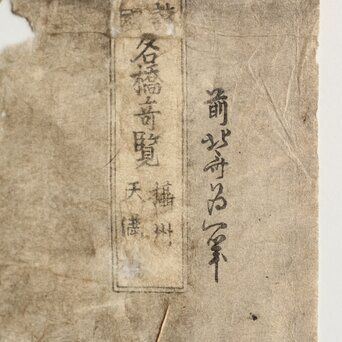 前北斎為一筆
名橋奇覧
攝州
天満